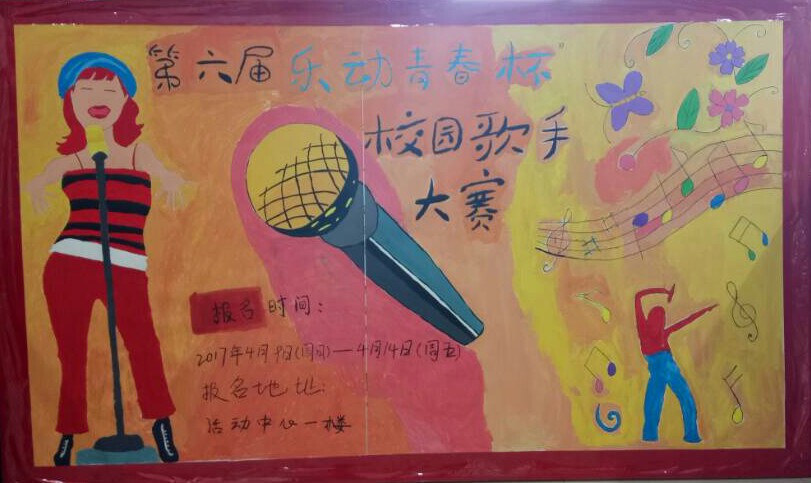 第六届“乐动青春杯”
校园歌手
大赛
报名时间：
2017年4月9日(周日)—4月14日(周五)
报名地址：
活动中心一楼